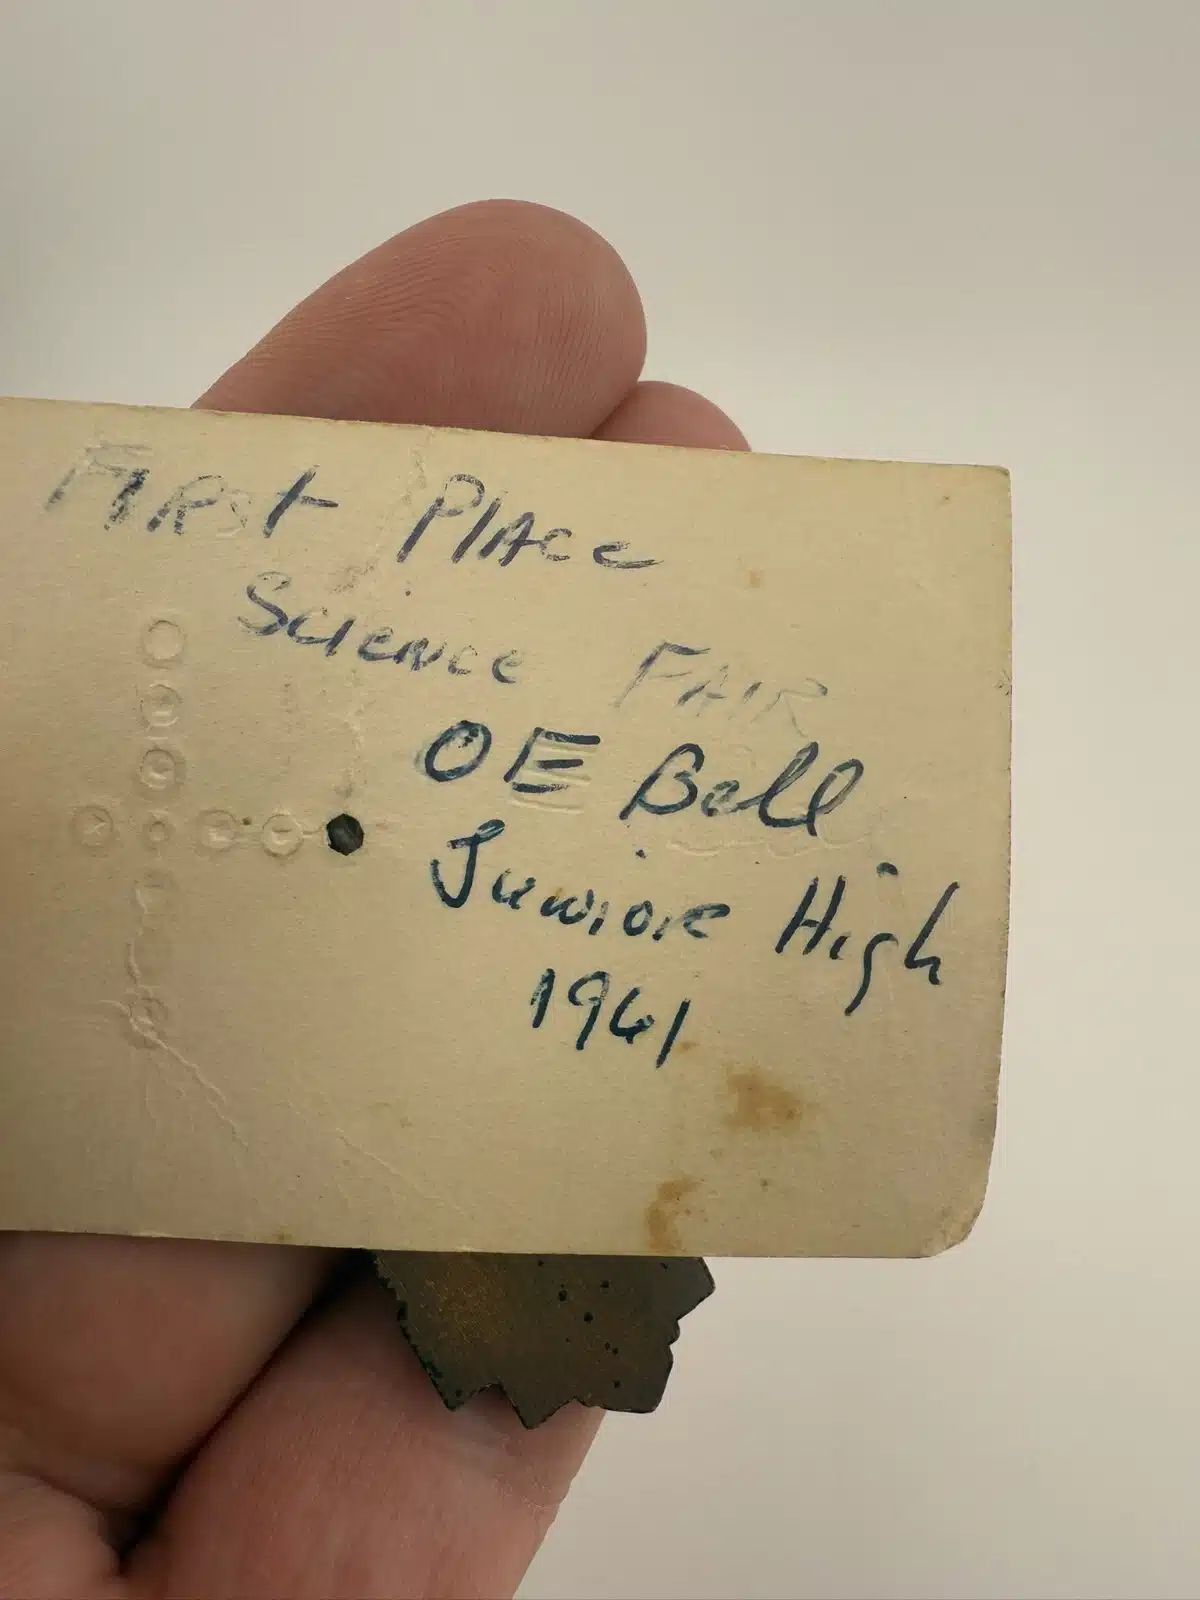 First Place
Science Fair
OE Bell
Junior High
1961